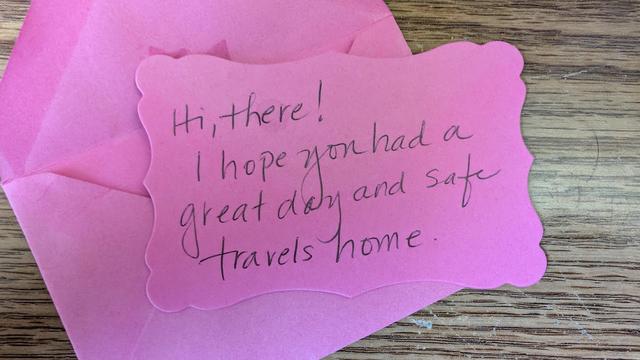 Hi, there!
I hope you had a
great day and safe
travels home.